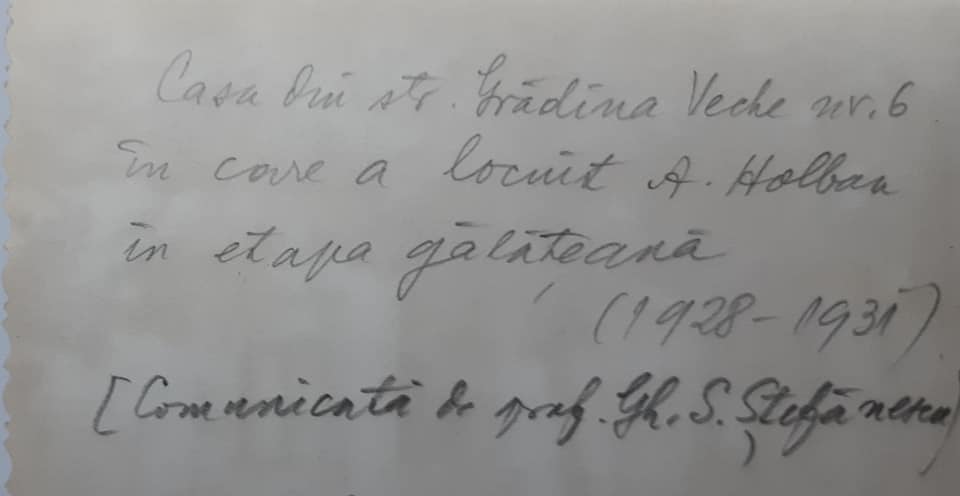 Casa din str. Grădina Veche nr. 6
în care a locuit A. Holban
în etapa gălățeană
(1928 - 1931)
[Comunicată de prof. Gh. S. Ștefănescu]